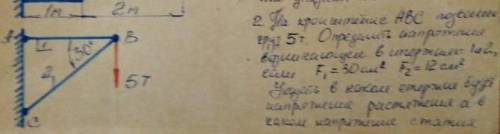 1м 2м
2. На кронштейне АВС подвешен
груз 5т. Определить напряжения
возникающее в стержнях 1 и 2,
если F₁ = 30 см² F₂ = 12 см²
Указать в каком стержне будет
напряжение растяжения а в
каком напряжение сжатия.
А 1 30° В
2
5т
С